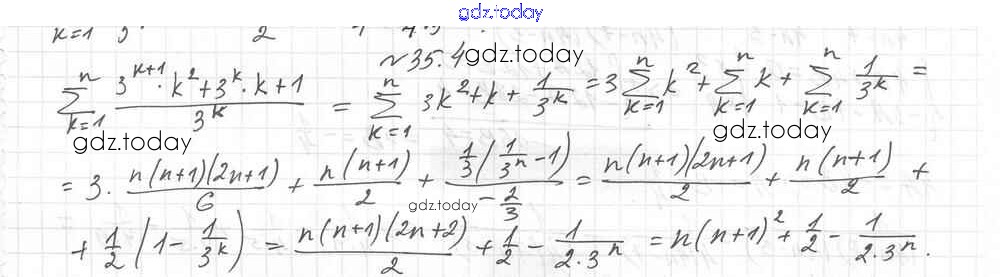 gdz.today
№35.4 gdz.today
∑_{k=1}^{n} (3^{k+1}·k²+3^k·k+1)/3^k = ∑_{k=1}^{n} 3k²+k+1/3^k = 3∑_{k=1}^{n} k²+∑_{k=1}^{n} k+∑_{k=1}^{n} 1/3^k =
gdz.today gdz.today
= 3· n(n+1)(2n+1)/6 + n(n+1)/2 + (1/3(1/3^n -1))/(-2/3) = n(n+1)(2n+1)/2 + n(n+1)/2 +
gdz.today
+ 1/2 (1- 1/3^k) = n(n+1)(2n+2)/2 + 1/2 - 1/(2·3^n) = n(n+1)² + 1/2 - 1/(2·3^n).